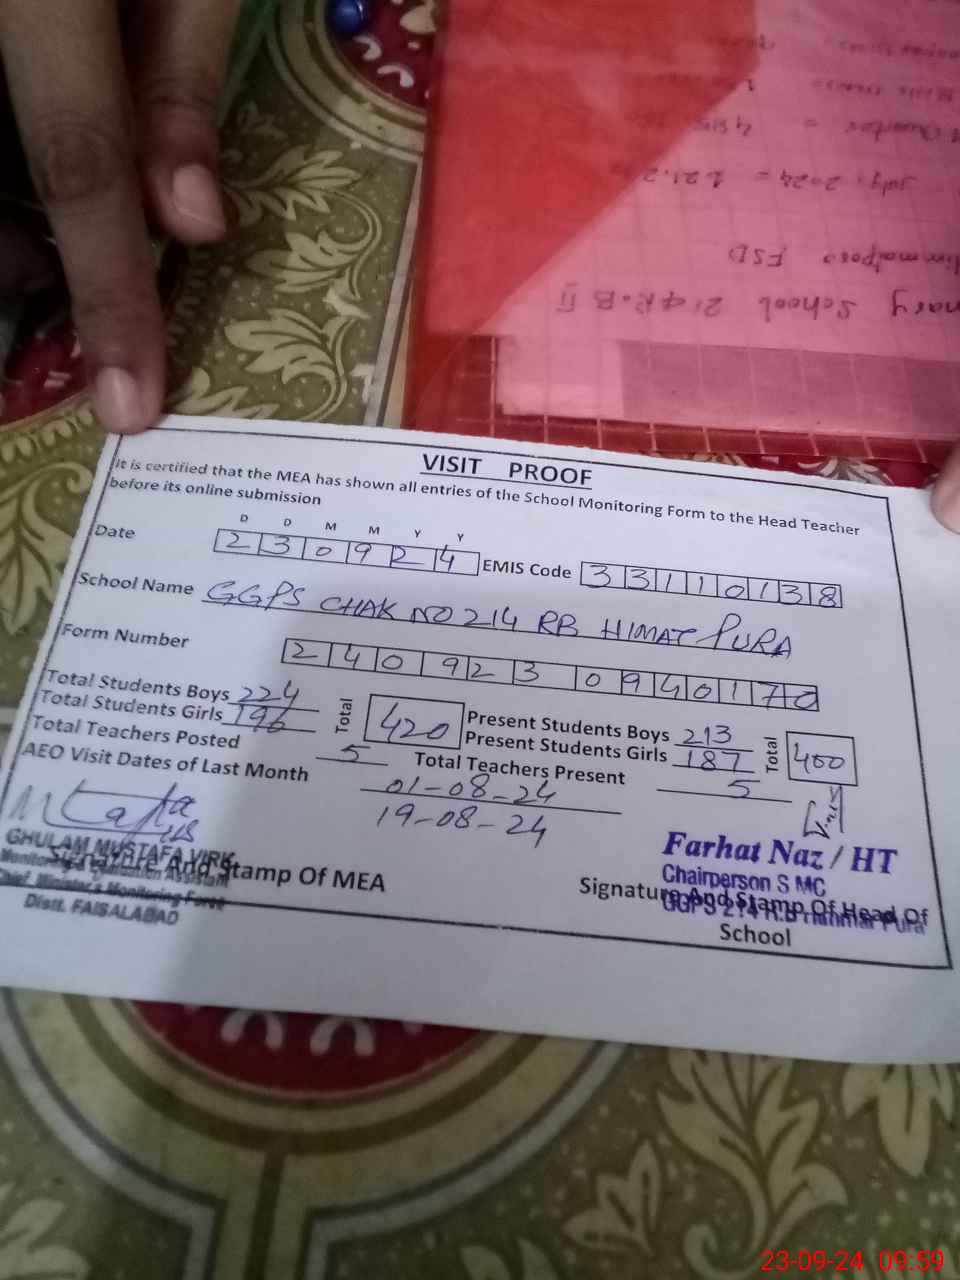 VISIT PROOF
It is certified that the MEA has shown all entries of the School Monitoring Form to the Head Teacher
before its online submission
D D M M Y Y
Date 2 3 0 9 2 4 EMIS Code 3 3 1 1 0 1 3 8
School Name GGPS CHAK NO 214 RB HIMAT PURA
Form Number 2 4 0 9 2 3 0 9 4 0 1 7 0
Total Students Boys 224 Total 420 Present Students Boys 213 Total 400
Total Students Girls 196 Present Students Girls 187
Total Teachers Posted 5 Total Teachers Present 5
AEO Visit Dates of Last Month 01-08-24
19-08-24
GHULAM MUSTAFA VIRK
Monitoring & Evaluation Assistant
Chief Minister's Monitoring Force
Distt. FAISALABAD
Signature And Stamp Of MEA
Farhat Naz / HT
Chairperson S MC
GGPS 214 R.B Himmat Pura
Signature And Stamp Of Head Of
School
July, 2024 =
FSD
School 214 R.B II
23-09-24 09:59